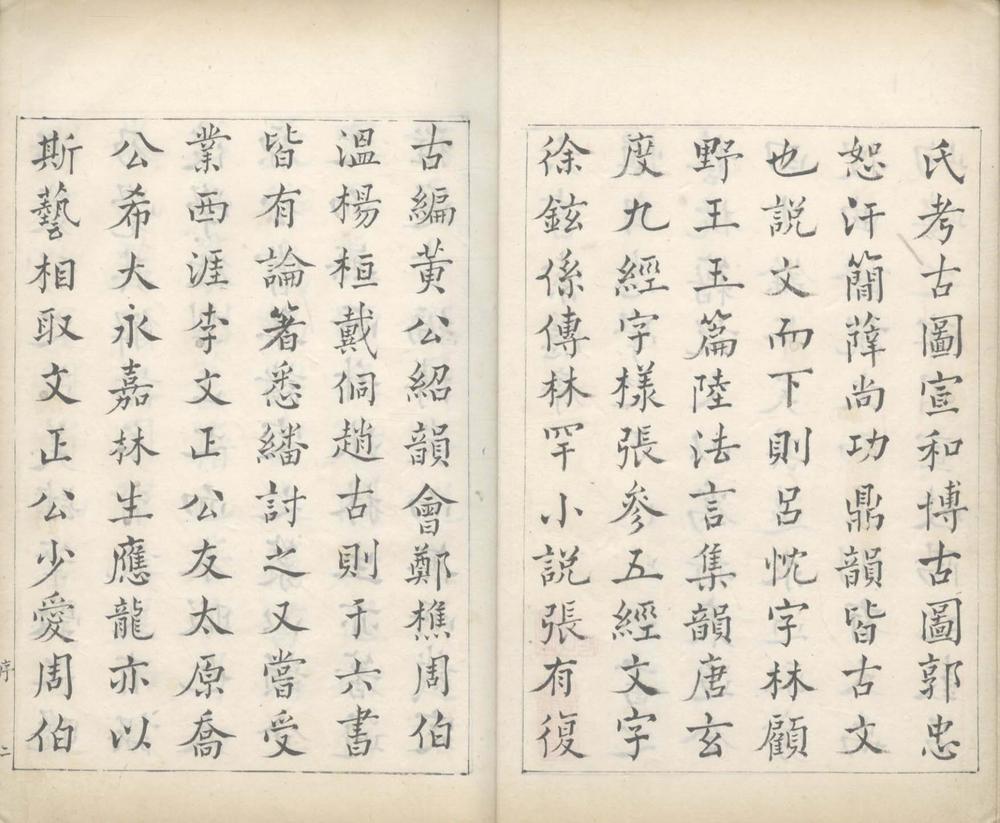 氏考古圖宣和博古圖郭忠
恕汗簡薛尚功鼎韻皆古文
也説文而下則呂忱字林顧
野王玉篇陸法言集韻唐玄
度九經字樣張參五經文字
徐鉉係傳林罕小説張有復
古編黃公紹韻會鄭樵周伯
溫楊桓戴侗趙古則于六書
皆有論著悉繙討之又嘗受
業西涯李文正公友太原喬
公希大永嘉林生應龍亦以
斯藝相取文正公少愛周伯
序
二